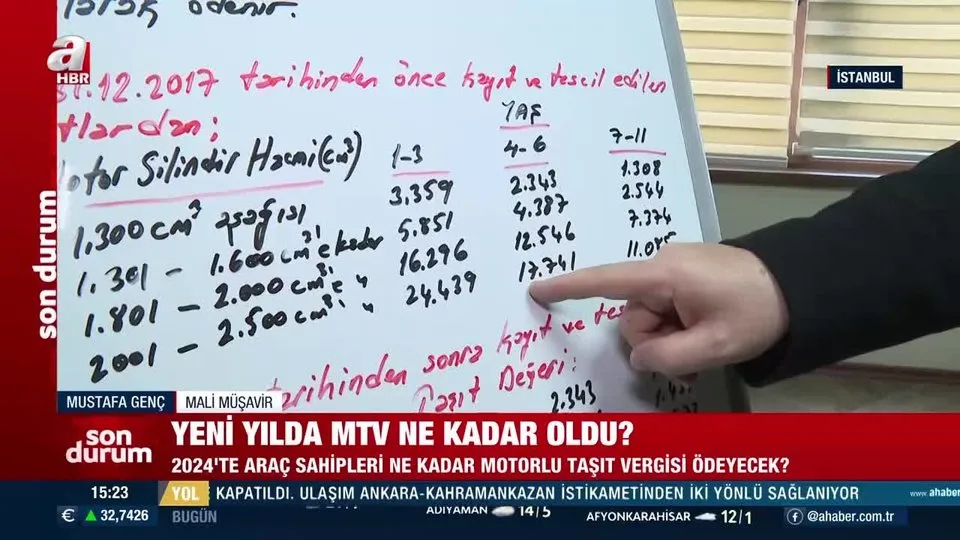 ödenir.
a
HBR
31.12.2017 tarihinden önce kayıt ve tescil edilen
İSTANBUL
YAŞ
Motor Silindir Hacmi (cm³) 1-3 4-6 7-11
1.300 cm³ aşağısı 3.359 2.343 1.308
1.301 - 1.600 cm³ e kadar 5.851 4.387 2.544
1.801 - 2.000 cm³ e " 16.296 12.546 7.374
2001 - 2.500 cm³ " 24.439 17.741
son durum
tarihinden sonra kayıt ve
Taşıt Değeri:
2.343
MUSTAFA GENÇ MALİ MÜŞAVİR
son durum
YENİ YILDA MTV NE KADAR OLDU?
2024'TE ARAÇ SAHİPLERİ NE KADAR MOTORLU TAŞIT VERGİSİ ÖDEYECEK?
15:23 YOL KAPATILDI. ULAŞIM ANKARA-KAHRAMANKAZAN İSTİKAMETİNDEN İKİ YÖNLÜ SAĞLANIYOR www.ahaber
€ 32,7426 BUGÜN ADIYAMAN 14/5 AFYONKARAHİSAR 12/1 @ahaber.com.tr